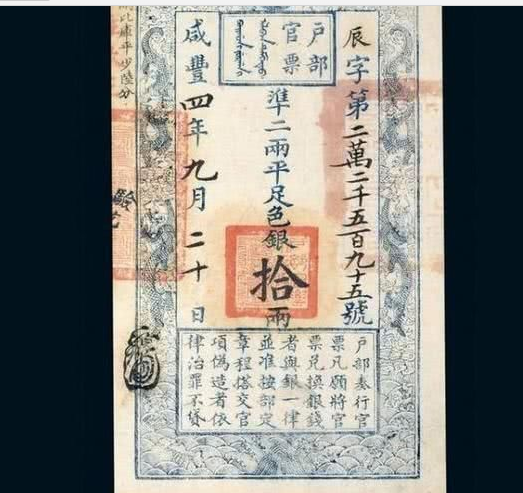 辰字第二萬二千五百九十五號
户部
官票
準二兩平足色銀拾兩
咸豐四年九月二十日
户部奏行官
票凡願將官
票兑換銀錢
者與銀一律
並准按部定
章程搭交官
項偽造者依
律治罪不貸
此庫平步陸分